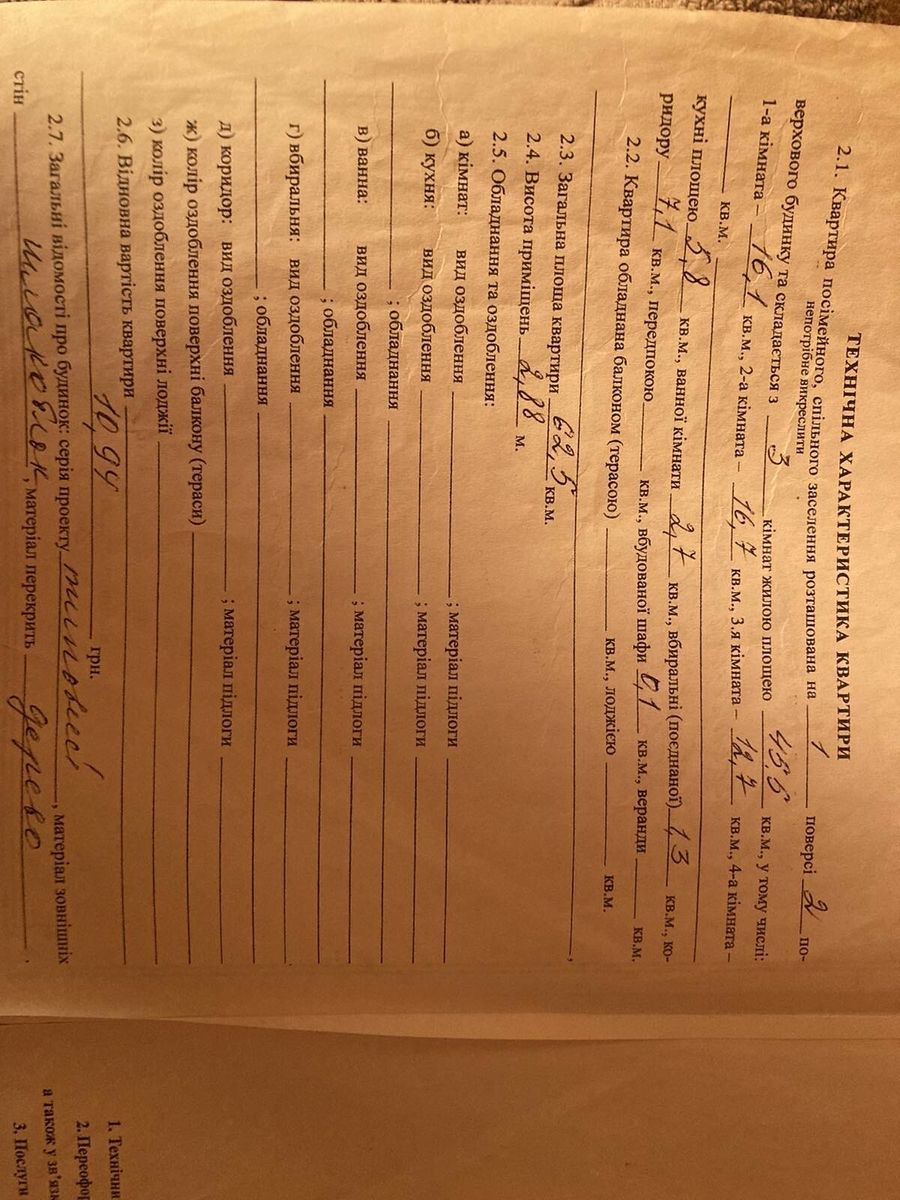 ТЕХНІЧНА ХАРАКТЕРИСТИКА КВАРТИРИ
2.1. Квартира посімейного, спільного заселення розташована на 1 поверсі 2 по-
непотрібне викреслити
верхового будинку та складається з 3 кімнат жилою площею 45,5 кв.м., у тому числі:
1-а кімната – 16,1 кв.м., 2-а кімната – 16,7 кв.м., 3.я кімната – 12,7 кв.м., 4-а кімната –
кв.м.
кухні площею 5,8 кв.м., ванної кімнати 2,7 кв.м., вбиральні (поєднаної) 1,3 кв.м., ко-
ридору 7,1 кв.м., передпокою кв.м., вбудованої шафи 0,1 кв.м., веранди кв.м.
2.2. Квартира обладнана балконом (терасою) кв.м., лоджією кв.м.
,
2.3. Загальна площа квартири 62,5 кв.м.
2.4. Висота приміщень 2,88 м.
2.5. Обладнання та оздоблення:
а) кімнат: вид оздоблення ; матеріал підлоги
б) кухня: вид оздоблення ; матеріал підлоги
; обладнання
в) ванна: вид оздоблення ; матеріал підлоги
; обладнання
г) вбиральня: вид оздоблення ; матеріал підлоги
; обладнання
д) коридор: вид оздоблення ; матеріал підлоги
ж) колір оздоблення поверхні балкону (тераси)
з) колір оздоблення поверхні лоджії
2.6. Відновна вартість квартири
1094 грн.
2.7. Загальні відомості про будинок: серія проекту типовесі, матеріал зовнішніх
стін шлокоблок, матеріал перекрить дерево.
1. Технічни
2. Переофор
а також у зв'язк
3. Послуги